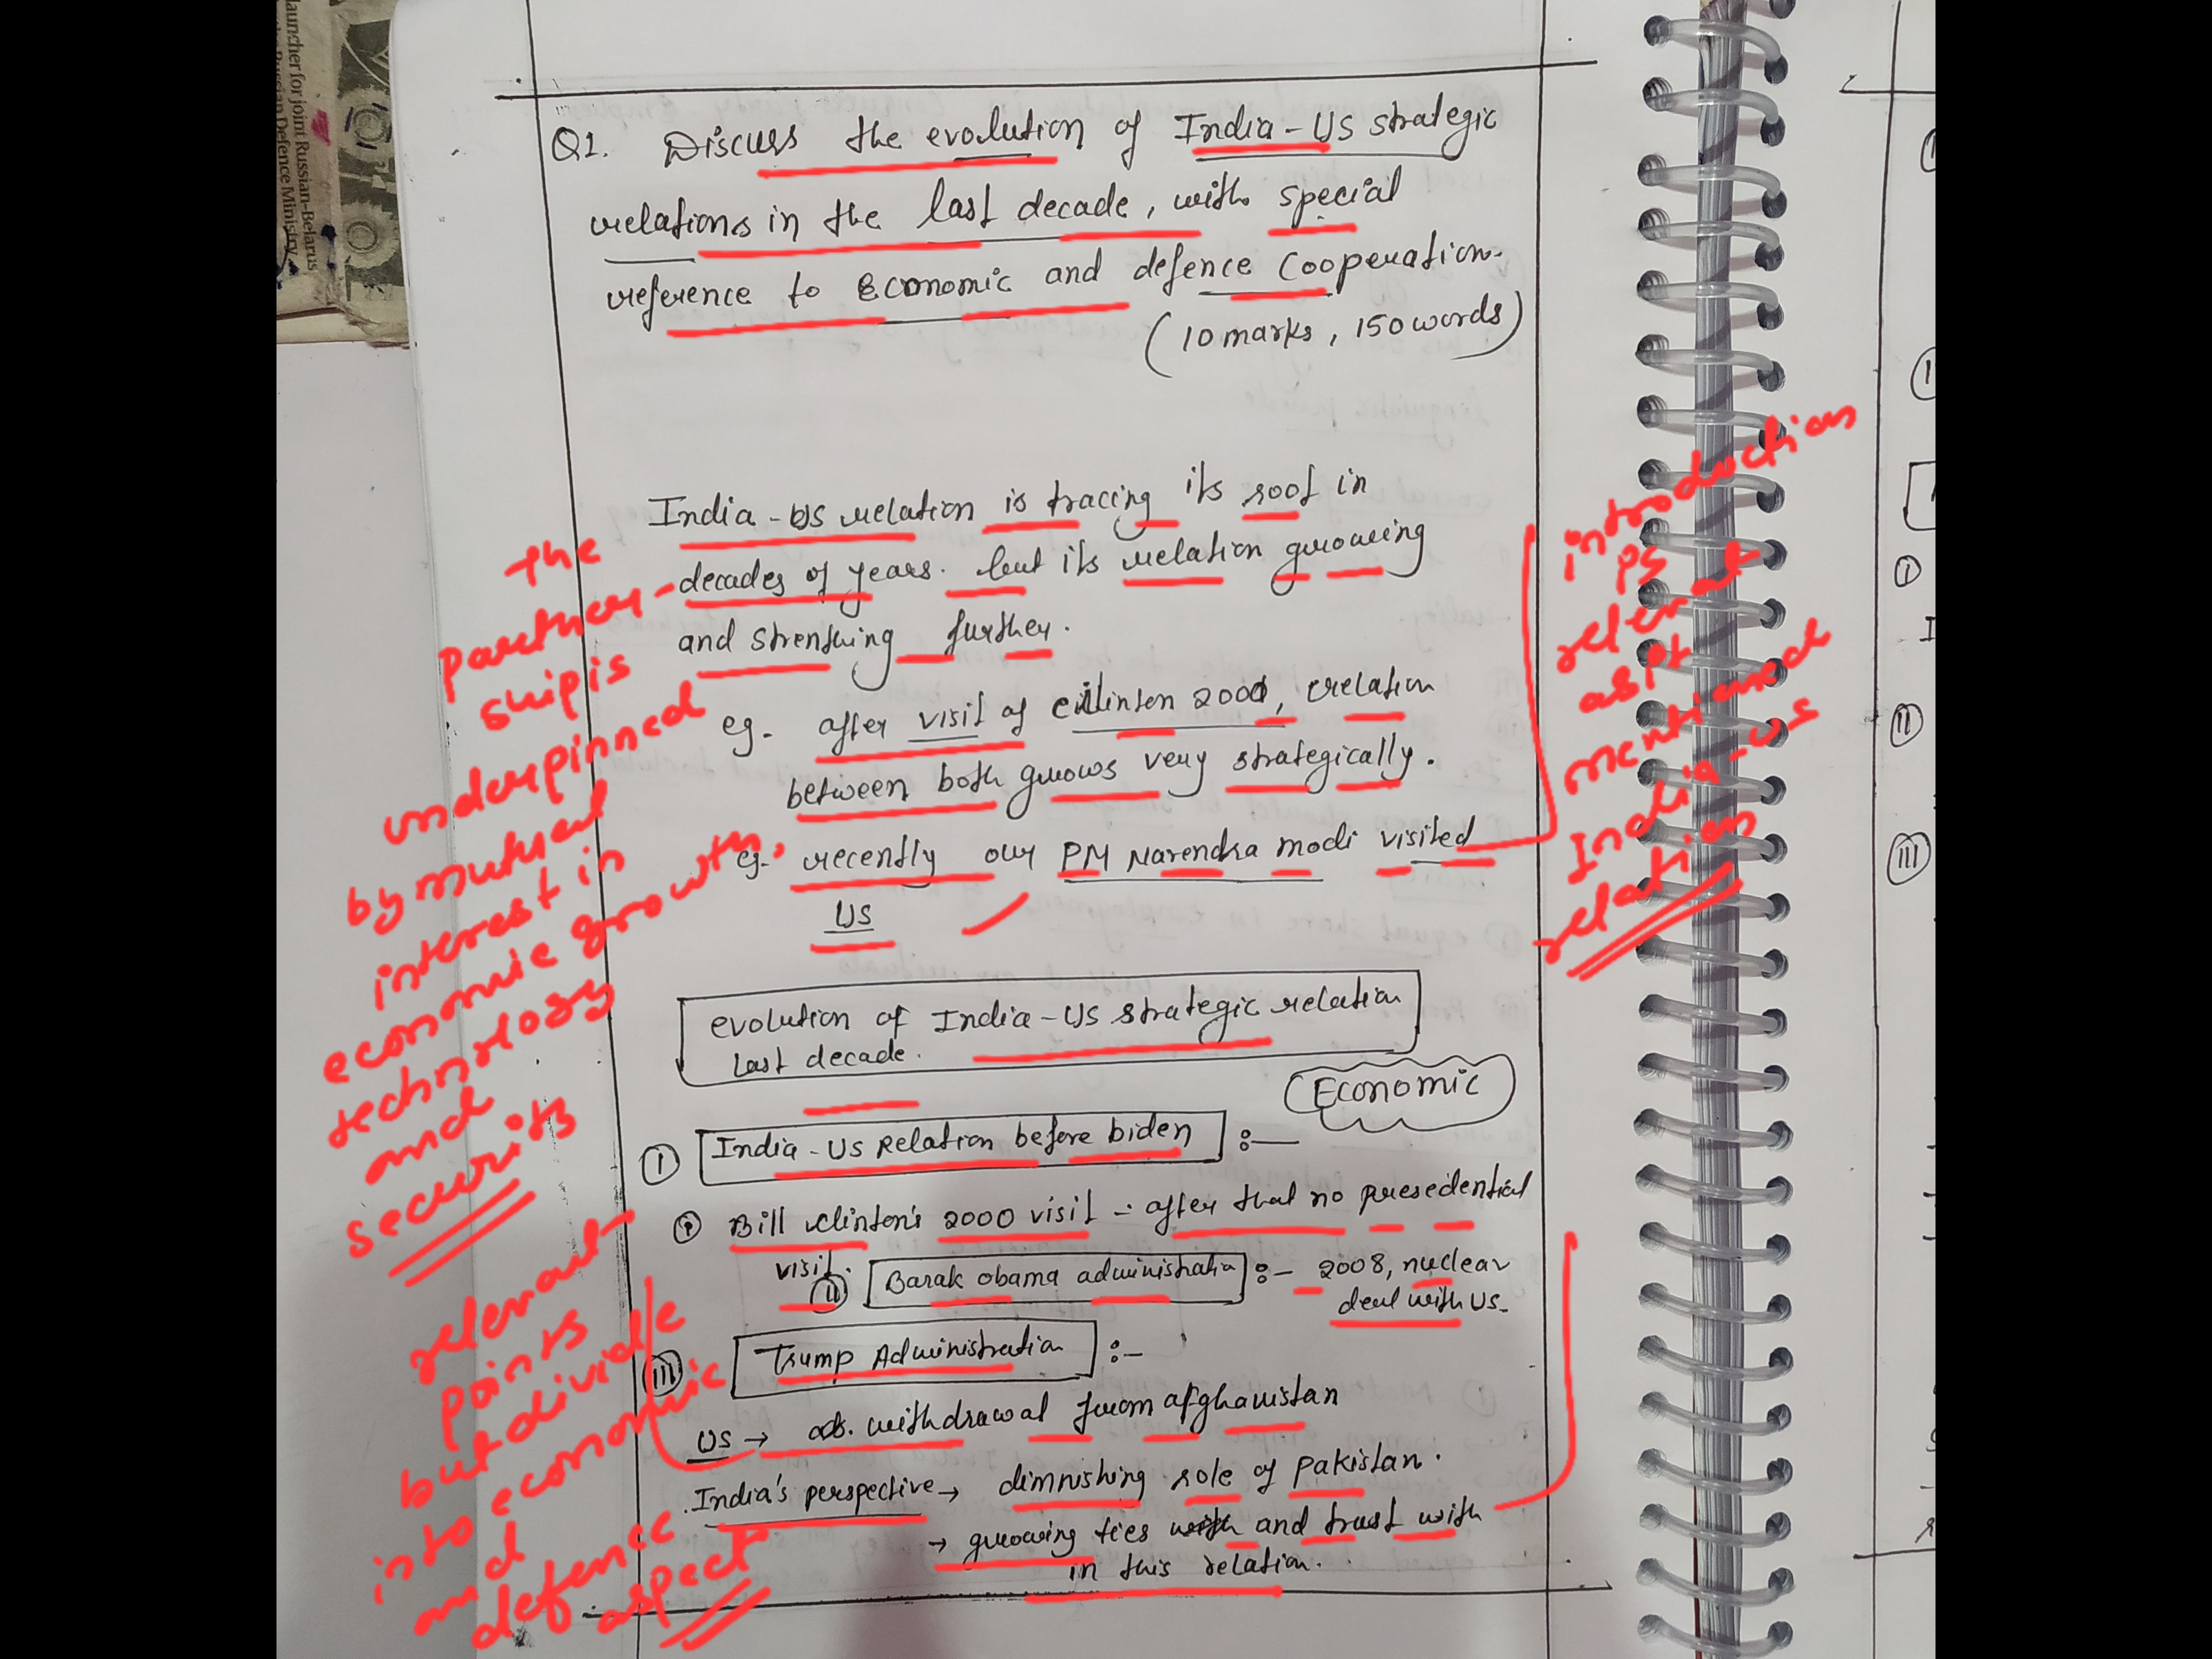 launcher for joint Russian-Belarus
Russian Defence Ministry
Q1. Discuss the evolution of India-US strategic
relations in the last decade, with special
reference to Economic and defence Cooperation.
(10 marks, 150 words)
India-US relation is tracing its root in
decades of years. but its relation growing
and strenthing further.
eg. after visit of Clinten 2000, relation
between both grows very strategically.
eg. recently our PM Narendra modi visited
US
introduction
is
relevant
aspt
mentioned
India-US
relation
the
partner-
ship is
underpinned
by mutual
interest in
economic growth,
technology
and
security
evolution of India-US strategic relation
last decade.
Economic
I India-US Relation before biden :-
Bill Clinton's 2000 visit - after that no presedential
visit.
II Barak obama administratin :- 2008, nuclear
deal with US.
III Trump Administration :-
US → withdrawal from afghanistan
India's perspective → dimnishing role of pakistan.
→ growing ties with and trust with
in this relation.
relevant
points
but divide
into economic
and
defence
aspect
I
II
III